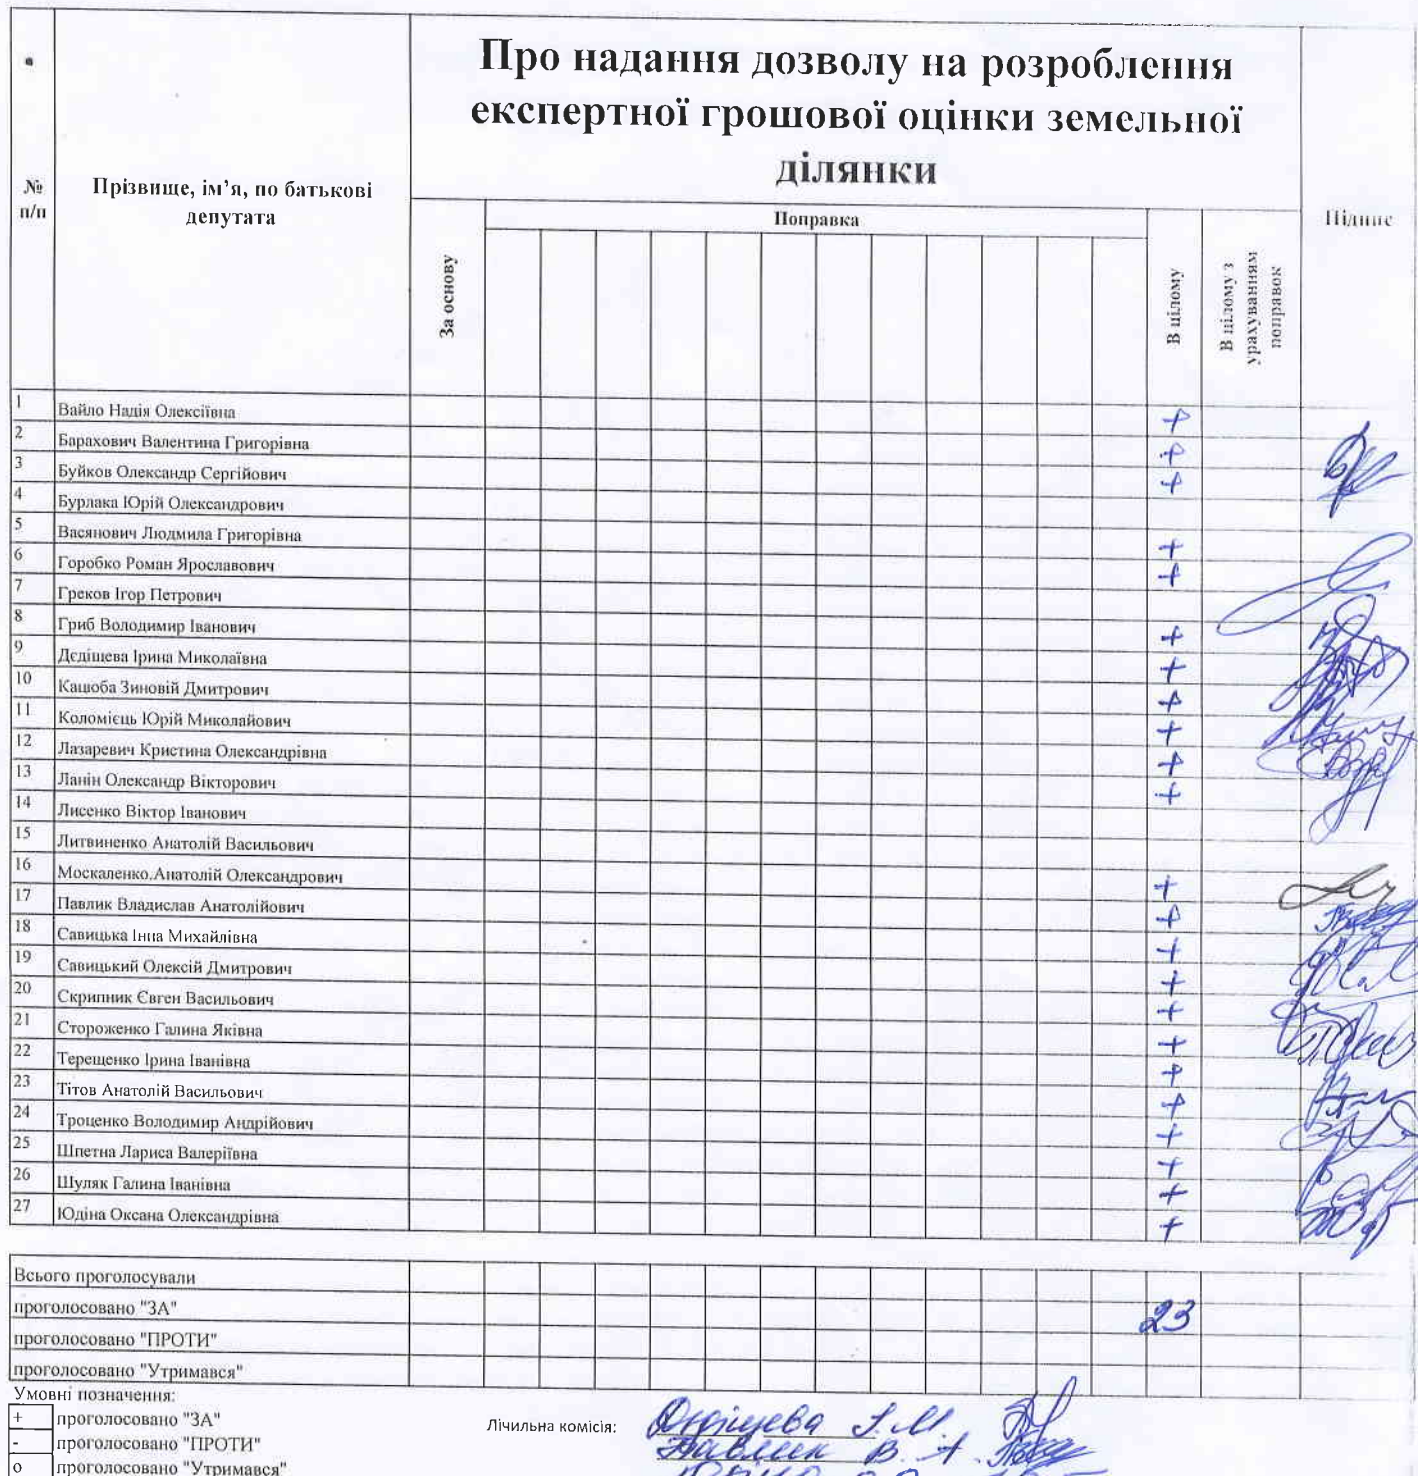 Про надання дозволу на розроблення
експертної грошової оцінки земельної
ділянки
№
п/п
Прізвище, ім’я, по батькові
депутата
За основу
Поправка
В цілому
В цілому з
урахуванням
поправок
Підпис
1 Вайло Надія Олексіївна +
2 Барахович Валентина Григорівна +
3 Буйков Олександр Сергійович +
4 Бурлака Юрій Олександрович
5 Васянович Людмила Григорівна +
6 Горобко Роман Ярославович +
7 Греков Ігор Петрович
8 Гриб Володимир Іванович +
9 Дєдіщева Ірина Миколаївна +
10 Кацюба Зиновій Дмитрович +
11 Коломієць Юрій Миколайович +
12 Лазаревич Кристина Олександрівна +
13 Ланін Олександр Вікторович +
14 Лисенко Віктор Іванович
15 Литвиненко Анатолій Васильович
16 Москаленко Анатолій Олександрович +
17 Павлик Владислав Анатолійович +
18 Савицька Інна Михайлівна +
19 Савицький Олексій Дмитрович +
20 Скрипник Євген Васильович +
21 Стороженко Галина Яківна +
22 Терещенко Ірина Іванівна +
23 Тітов Анатолій Васильович +
24 Троценко Володимир Андрійович +
25 Шпетна Лариса Валеріївна +
26 Шуляк Галина Іванівна +
27 Юдіна Оксана Олександрівна +
Всього проголосували
проголосовано "ЗА" 23
проголосовано "ПРОТИ"
проголосовано "Утримався"
Умовні позначення:
+ проголосовано "ЗА"
- проголосовано "ПРОТИ"
о проголосовано "Утримався"
Лічильна комісія: Дєдіщева І. М.
Павлик В. А.